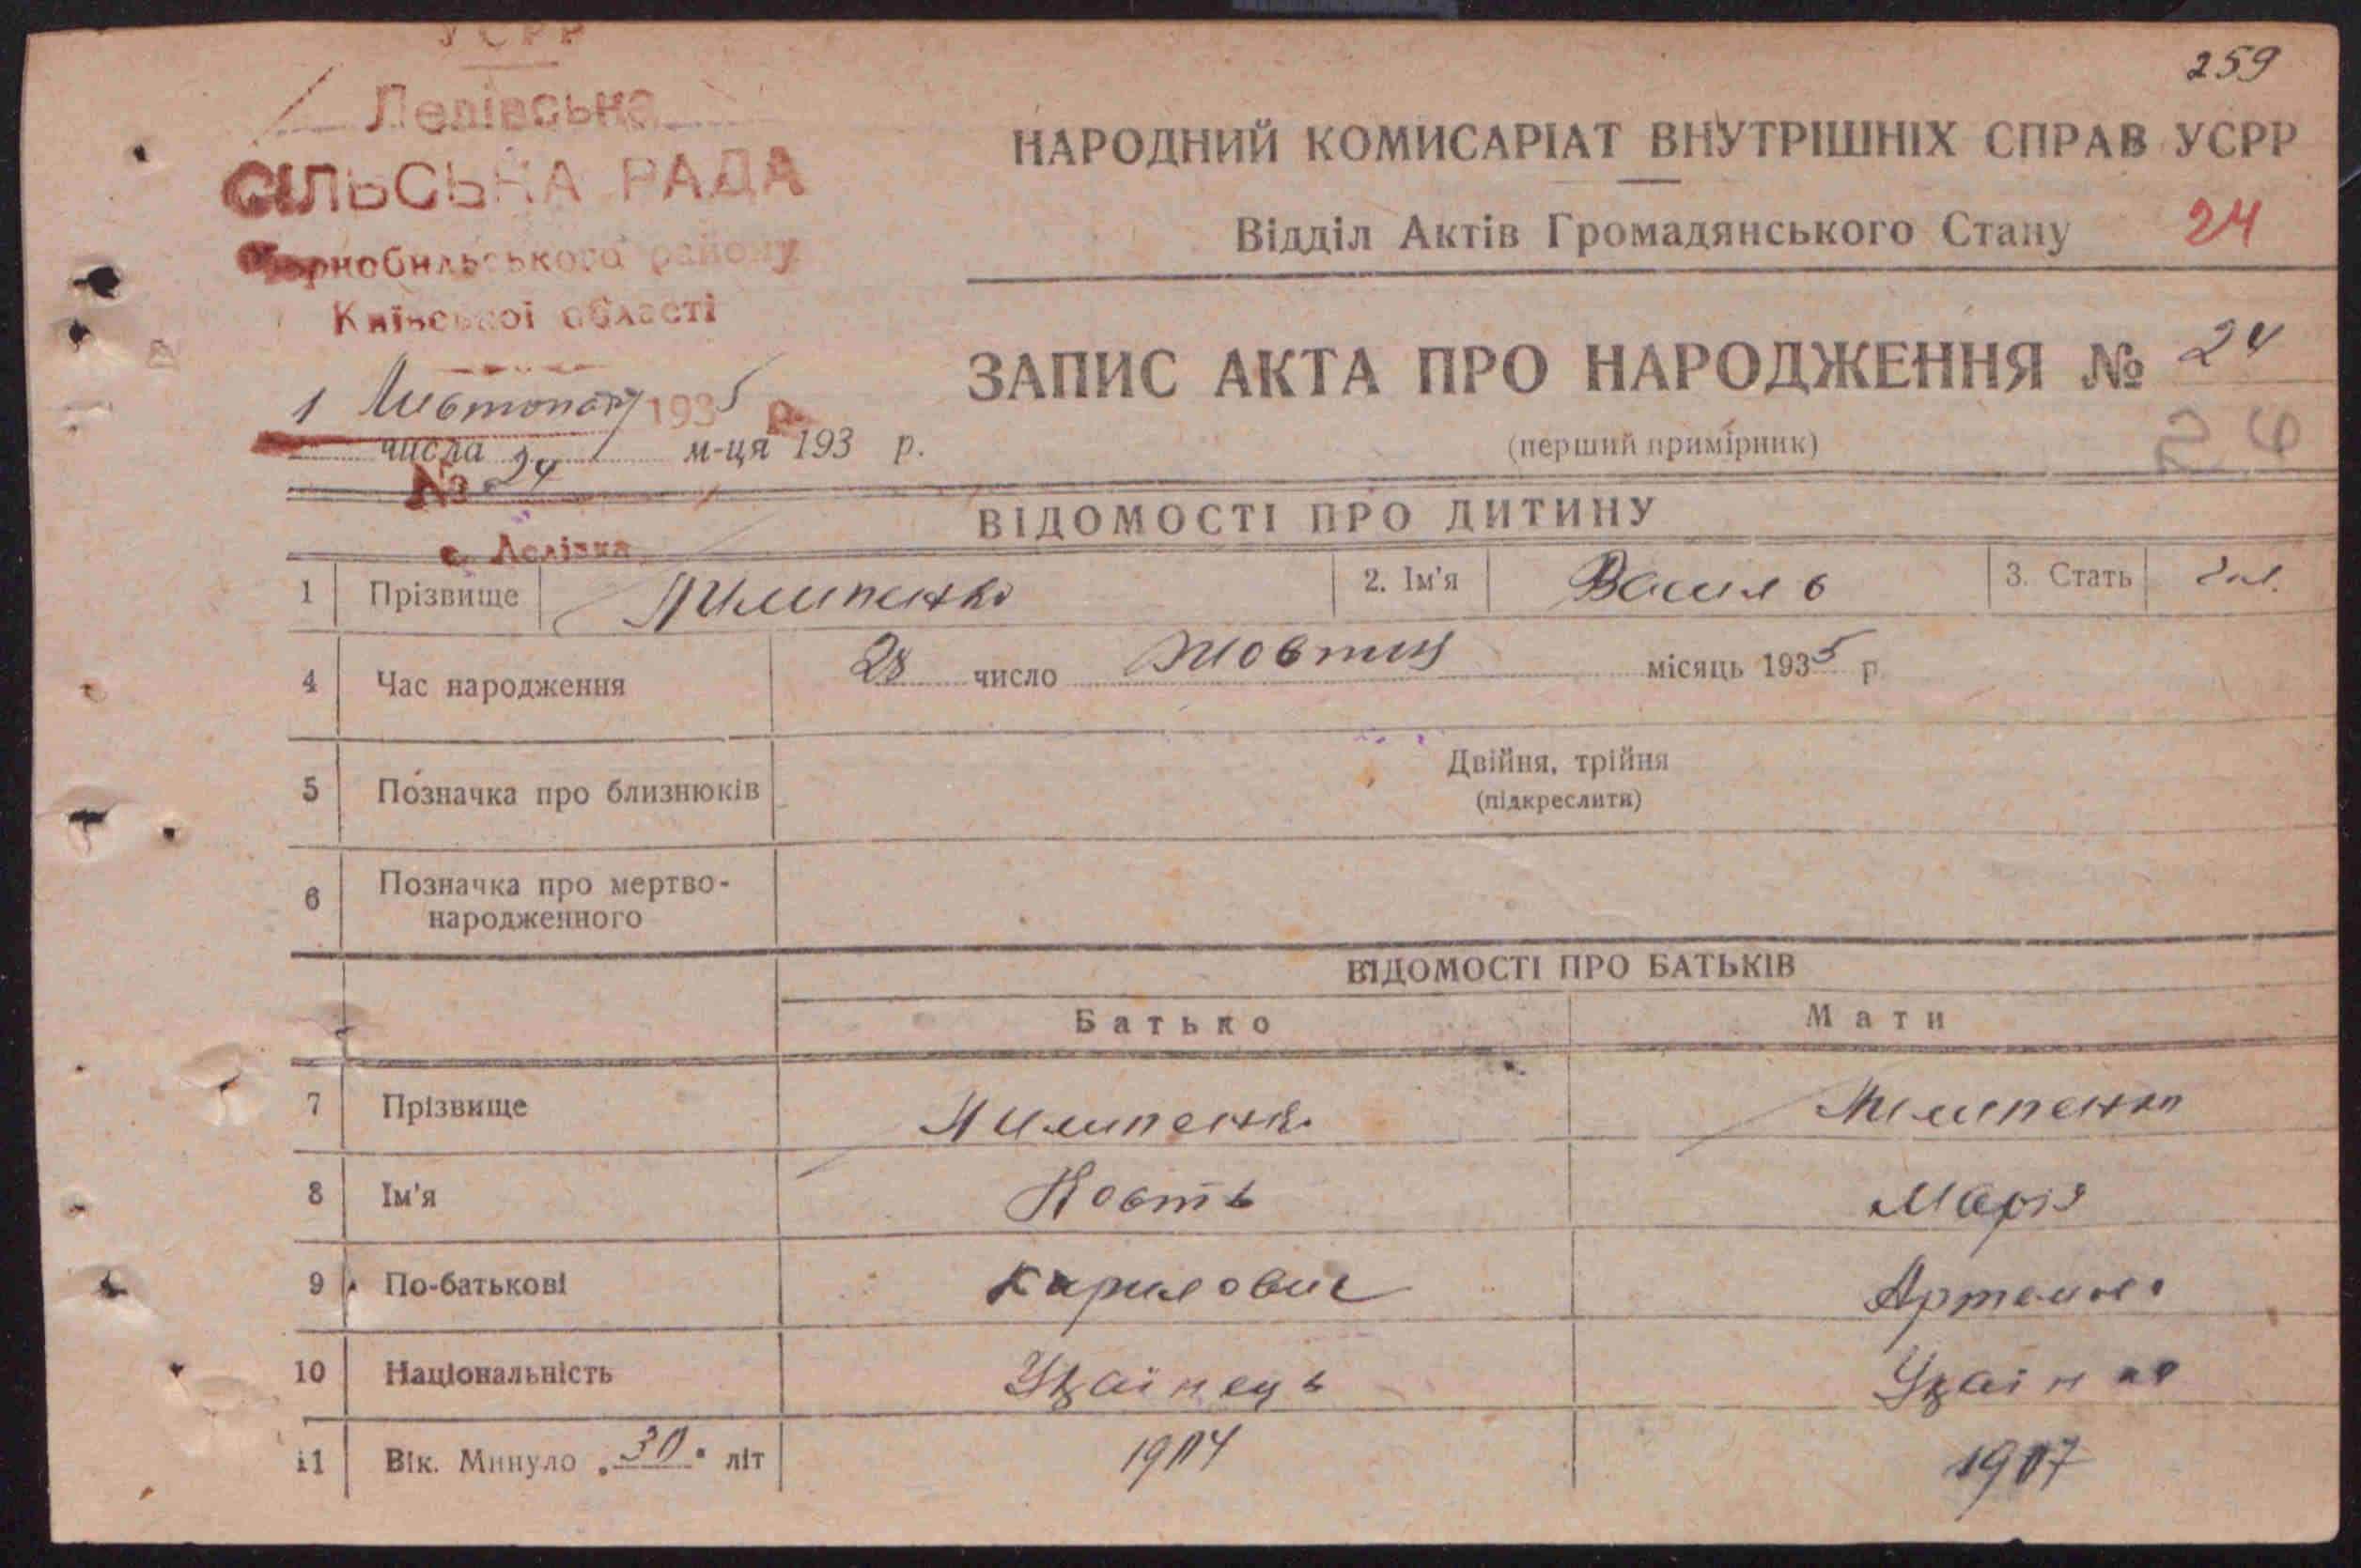 259
УСРР
Лелівська
СІЛЬСЬКА РАДА
Чорнобильського району
Київської області
1 Листопаду 1935 р.
числа м-ця 193 р.
№ 24
с. Лелівка
НАРОДНИЙ КОМИСАРІАТ ВНУТРІШНІХ СПРАВ УСРР
Відділ Актів Громадянського Стану 24
ЗАПИС АКТА ПРО НАРОДЖЕННЯ № 24
(перший примірник) 24
ВІДОМОСТІ ПРО ДИТИНУ
1 Прізвище Пилипенко 2. Ім'я Василь 3. Стать
4 Час народження 28 число Жовтня місяць 1935 р.
5 Позначка про близнюків Двійня, трійня
(підкреслити)
6 Позначка про мертво-
народженного
ВІДОМОСТІ ПРО БАТЬКІВ
Батько Мати
7 Прізвище Пилипенко Пилипенко
8 Ім'я Кость Марія
9 По-батькові Карилович
10 Національність Українець Українка
11 Вік. Минуло 30 літ 1904 1907